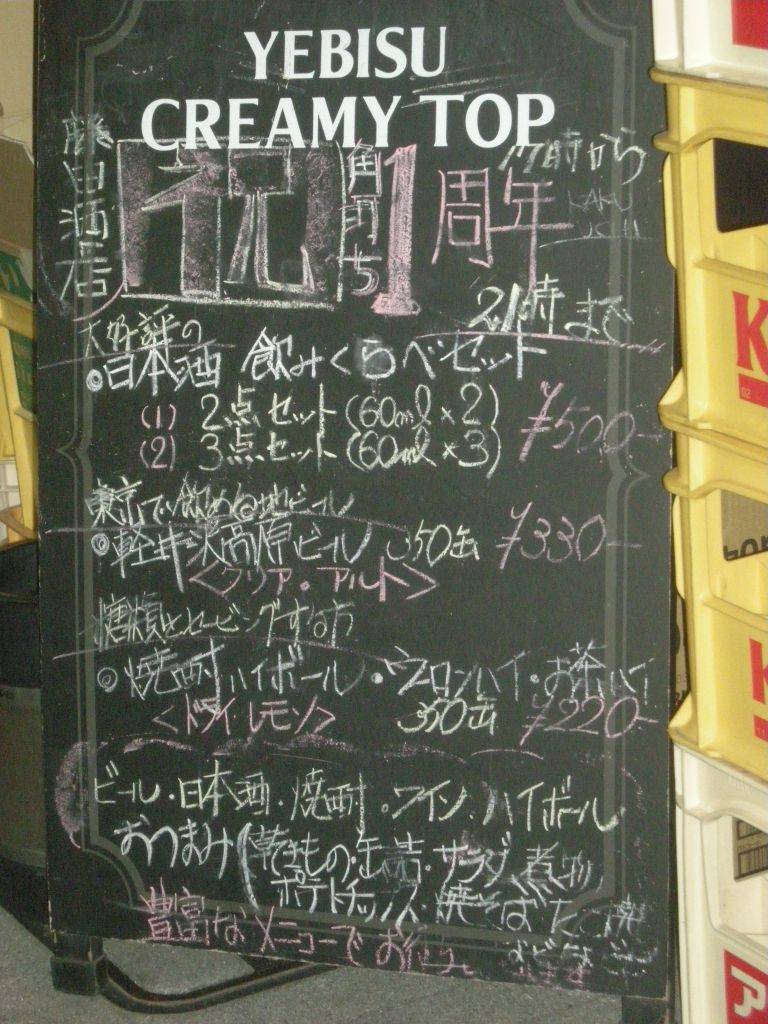 YEBISU
CREAMY TOP
藤田酒店
祝
角打ち
1周年
17時から
KAKU
UCHI
21時まで
大好評の
◎日本酒 飲みくらべセット
(1) 2点セット(60ml×2) ¥500-
(2) 3点セット(60ml×3)
東京で飲める地ビール
◎軽井沢高原ビール 350缶 ¥330-
<クリア・アルト>
糖類をセービングする方
◎焼酎ハイボール・ウーロンハイ・お茶ハイ
<ドライ・レモン> 350缶 ¥220-
ビール・日本酒・焼酎・ワイン・ハイボール
おつまみ(乾きもの・缶詰・サラダ・煮物
ポテトチップス・焼そば・たこ焼
などなど
豊富なメニューでお待ち
K
K
ア